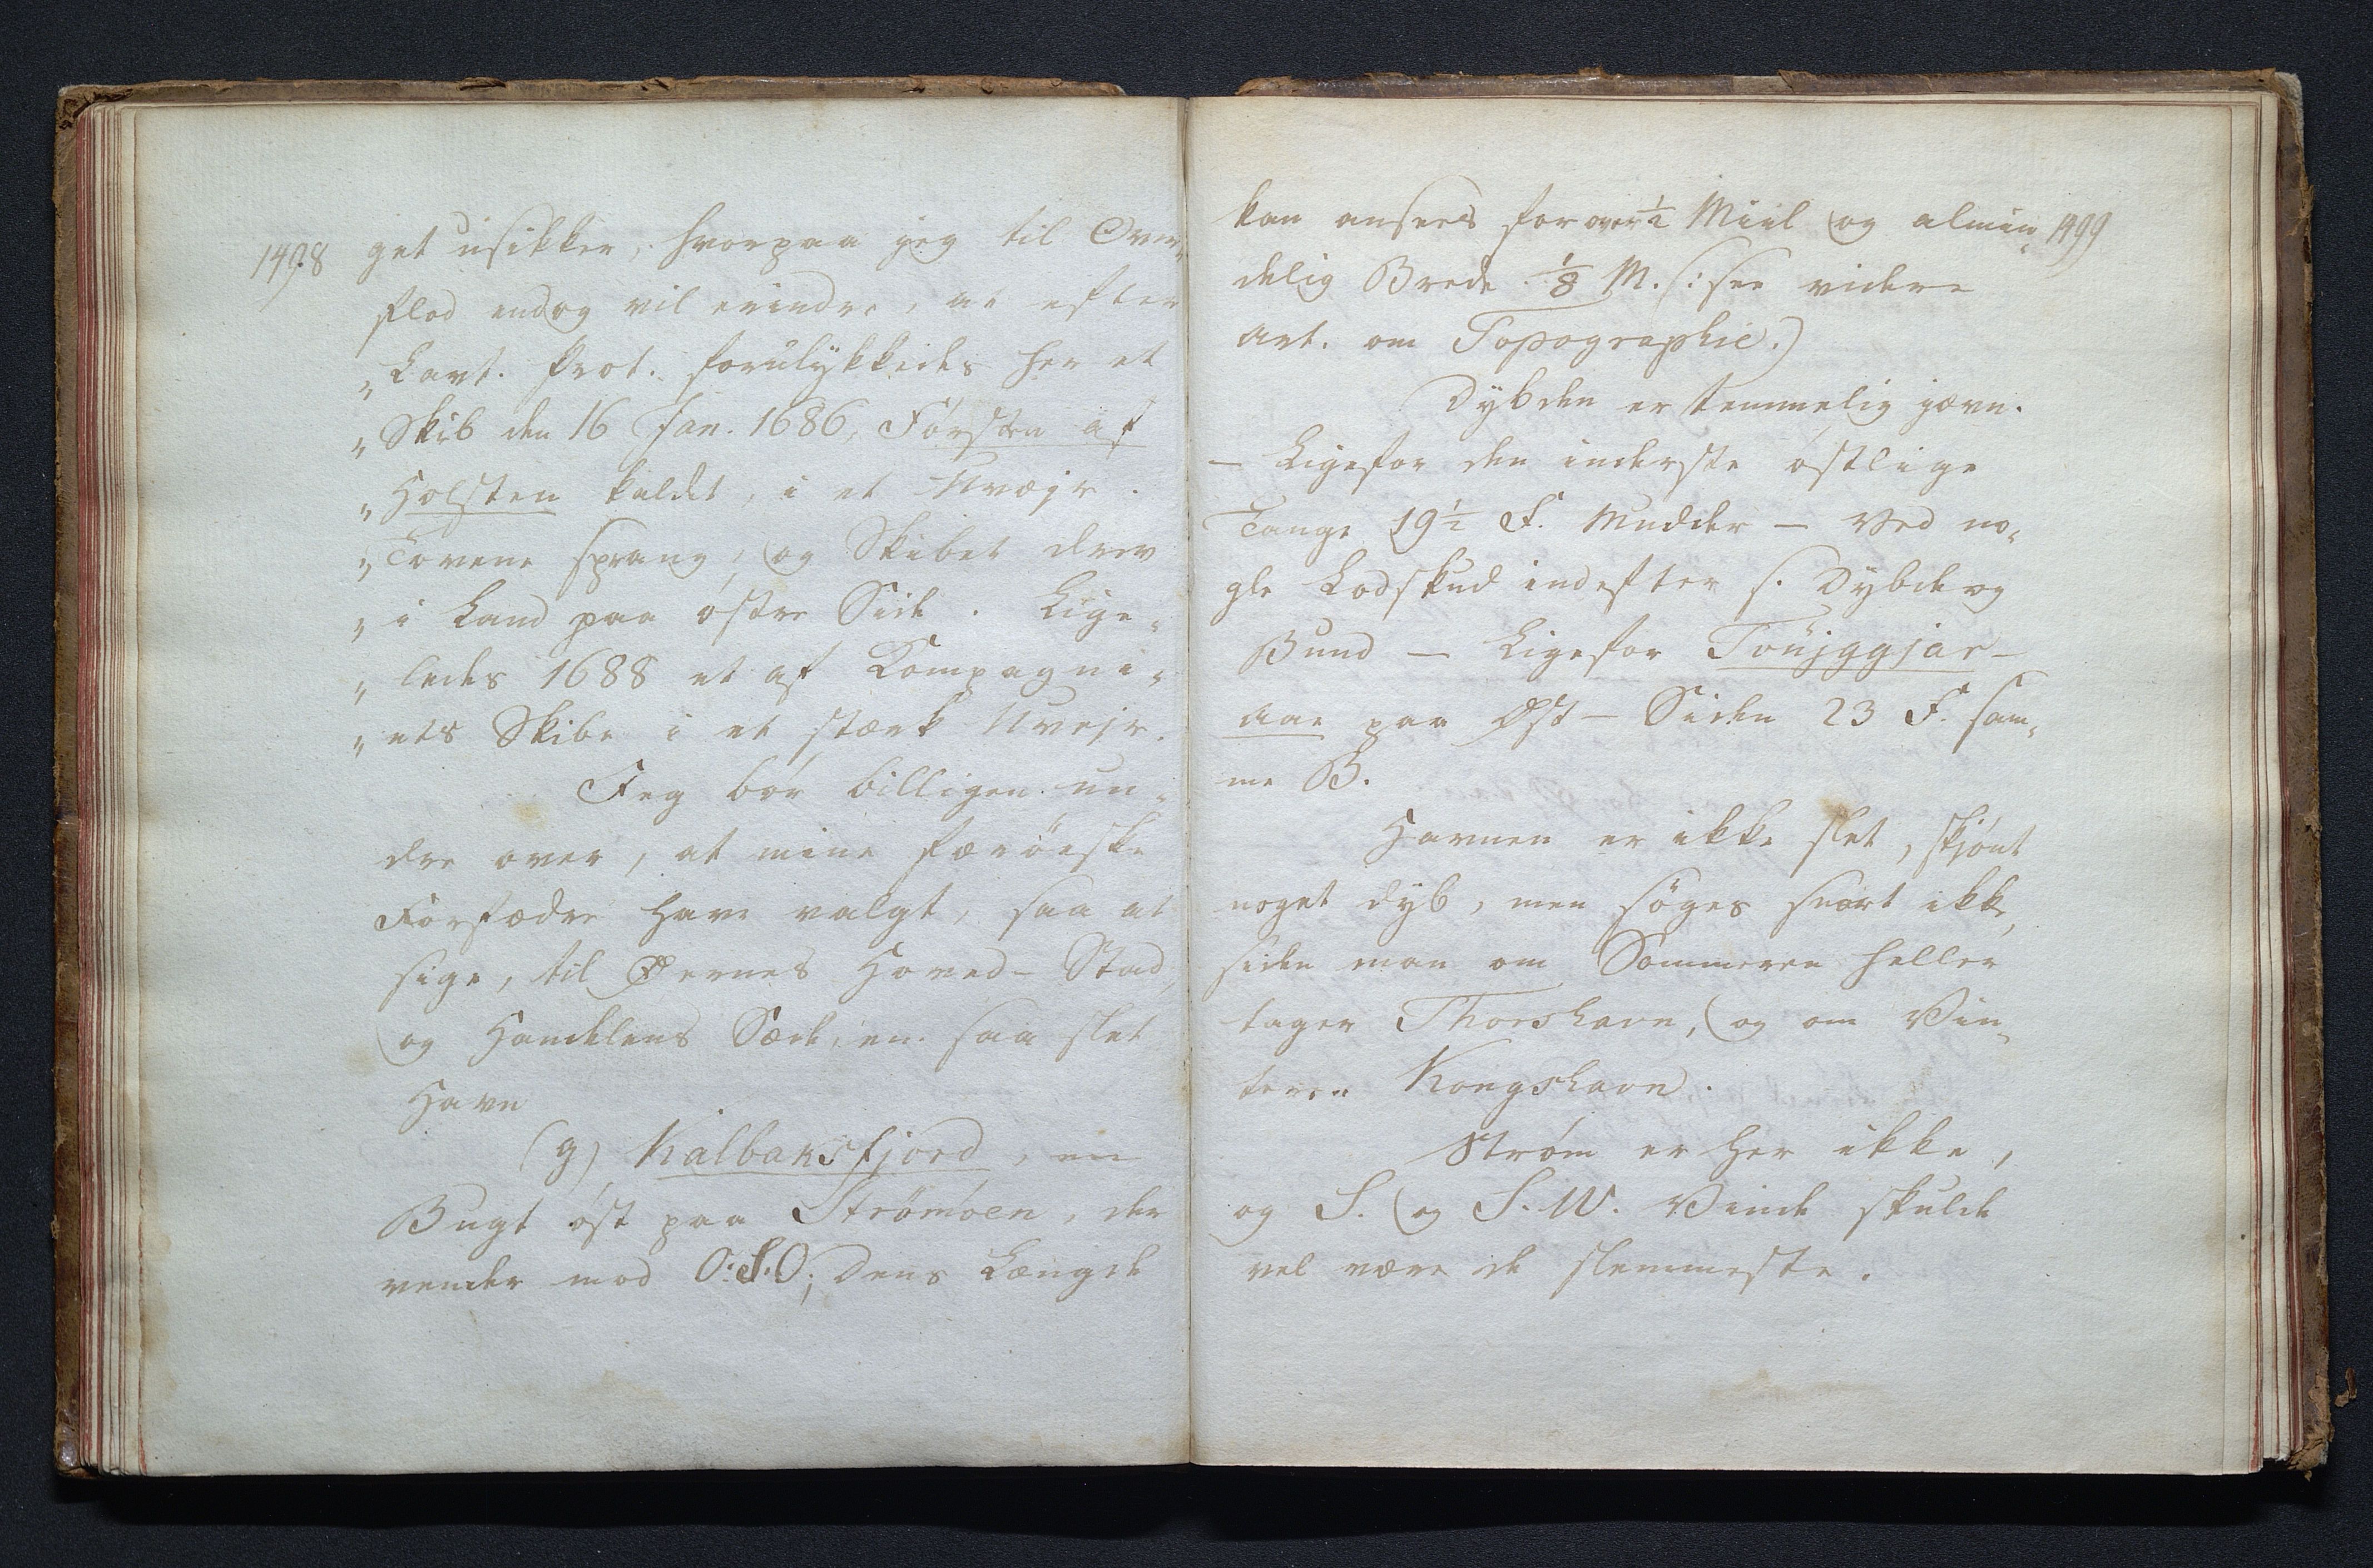 1498
get usikker, hvorpaa jeg til Over„
flod endog vil erindre, at efter
„Lavt. Prot. forulykkedes her et
„Skib den 16 Jan. 1686, Försten af
„Holsten kaldet, i et Uvejr.
„Tovene sprang, og Skibet drev
„i Land paa östre Side. Lige„
„ledes 1688 et af Compagni„
„ets Skibe i et stærk Uvejr.
Jeg bör billigen un„
dre over, at mine færöeske
Forfædre have valgt, saa at
sige, til Øernes Hoved-Stad,
og Handelens Sæde, en saa slet
Havn
(g) Kalbaksfjord, en
Bugt öst paa Strømöen, der
vender mod O.S.O; Dens Længde
1499
kan ansees for over ½ Miil og almin„
delig Brede ⅛ M. (: see videre
Art. om Topographie.)
Dybden er temmelig jævn.
— Ligefor den inderste östlige
Tange 19½ F. Mudder — Ved no„
gle Lodskud indefter s. Dybde og
Bund — Ligefor Toüjggjar-
aae paa Øst-Siden 23 F. sam„
me B.
Havnen er ikke slet, skjönt
noget dyb, men söges snart ikke,
siden man om Sommeren heller
tager Thorshavn, og om Vin„
teren Kongshavn.
Ström er her ikke,
og S. og S.W. Vinde skulde
vel være de slemmeste.